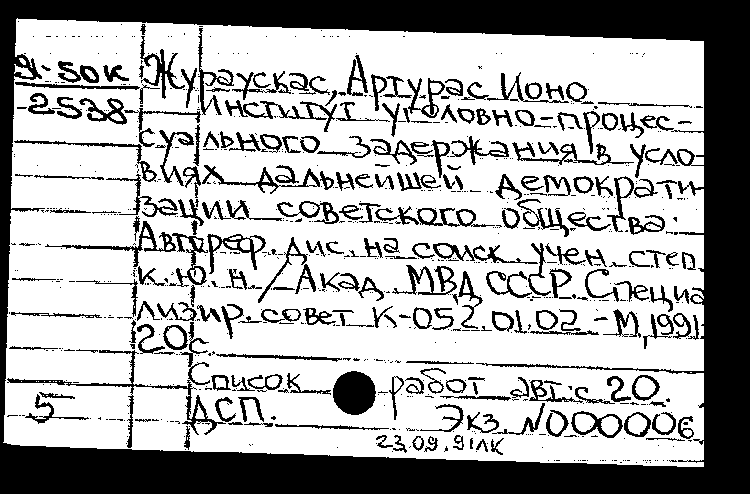 91-50к
2538
Жураускас, Артурас Ионо
Институт уголовно-процес-
суального задержания в усло-
виях дальнейшей демократи-
зации советского общества:
Автореф. дис. на соиск. учен. степ.
к. ю. н. / Акад. МВД СССР. Специа
лизир. совет К-052.01.02. - М, 1991-
20 с.
Список работ авт: с 20.
5 ДСП. Экз. N000006
23.09.91ЛК